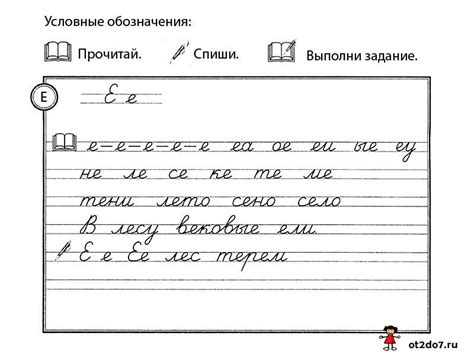 Условные обозначения:
Прочитай. Спиши. Выполни задание.
Е
Е е
е–е–е–е–е еа ое еи ые еу
не ле се ке те ме
тени лето сено село
В лесу вековые ели
Е е Ее лес терем
ot2do7.ru